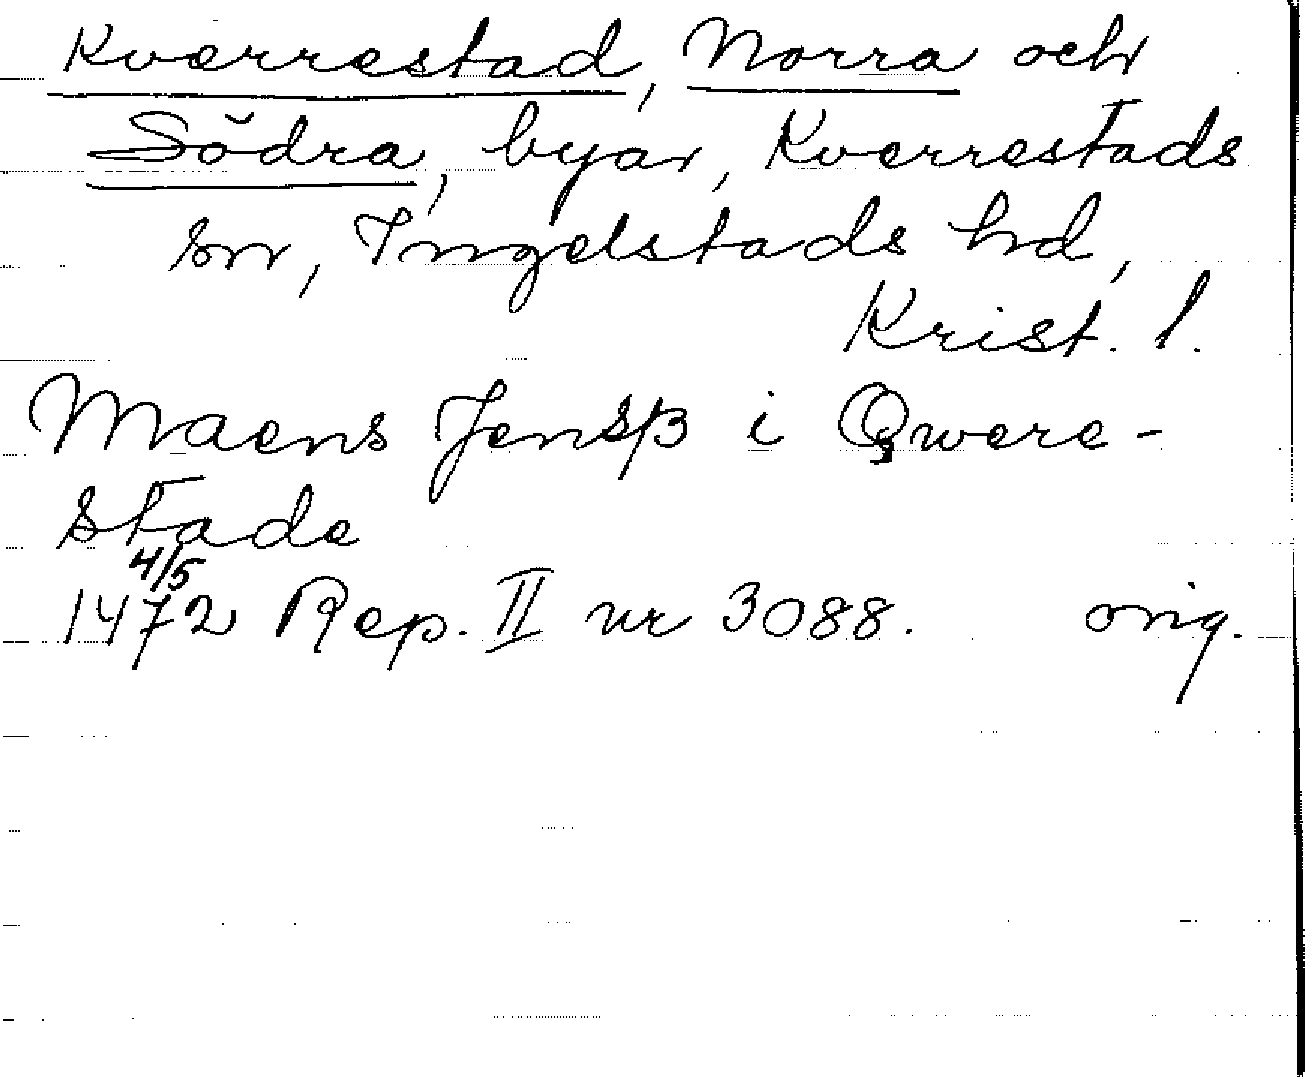 Kverrestad, Norra och
Södra, byar, Kverrestads
sn, Ingelstads hd,
Krist. l.
Maens Jensß i Qwere-
stade
4/5
1472 Rep. II nr 3088. orig.